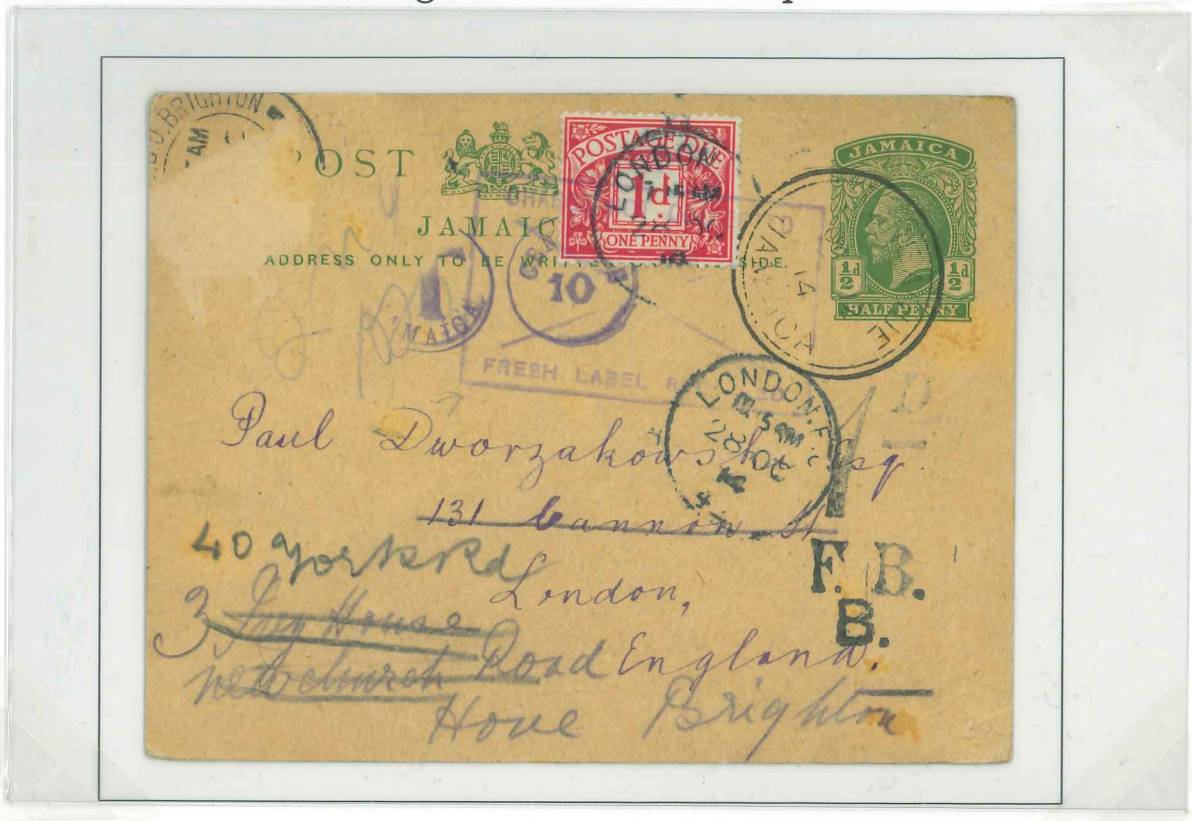 BRIGHTON
AM
POST
JAMAIC
ADDRESS ONLY TO BE WRIT SIDE.
POSTAGE DUE
1d
ONE PENNY
LONDON
JAMAICA
½d ½d
HALF PENNY
JAMAICA
14
1
JAMAICA
10
FRESH LABEL
LONDON.F
28 OC
14
1 D
Paul Dworzakowski Esq.
131 Cannon St
40 York Rd
London,
3 House
Newchurch Road England.
Hove Brighton
F. B.
B.